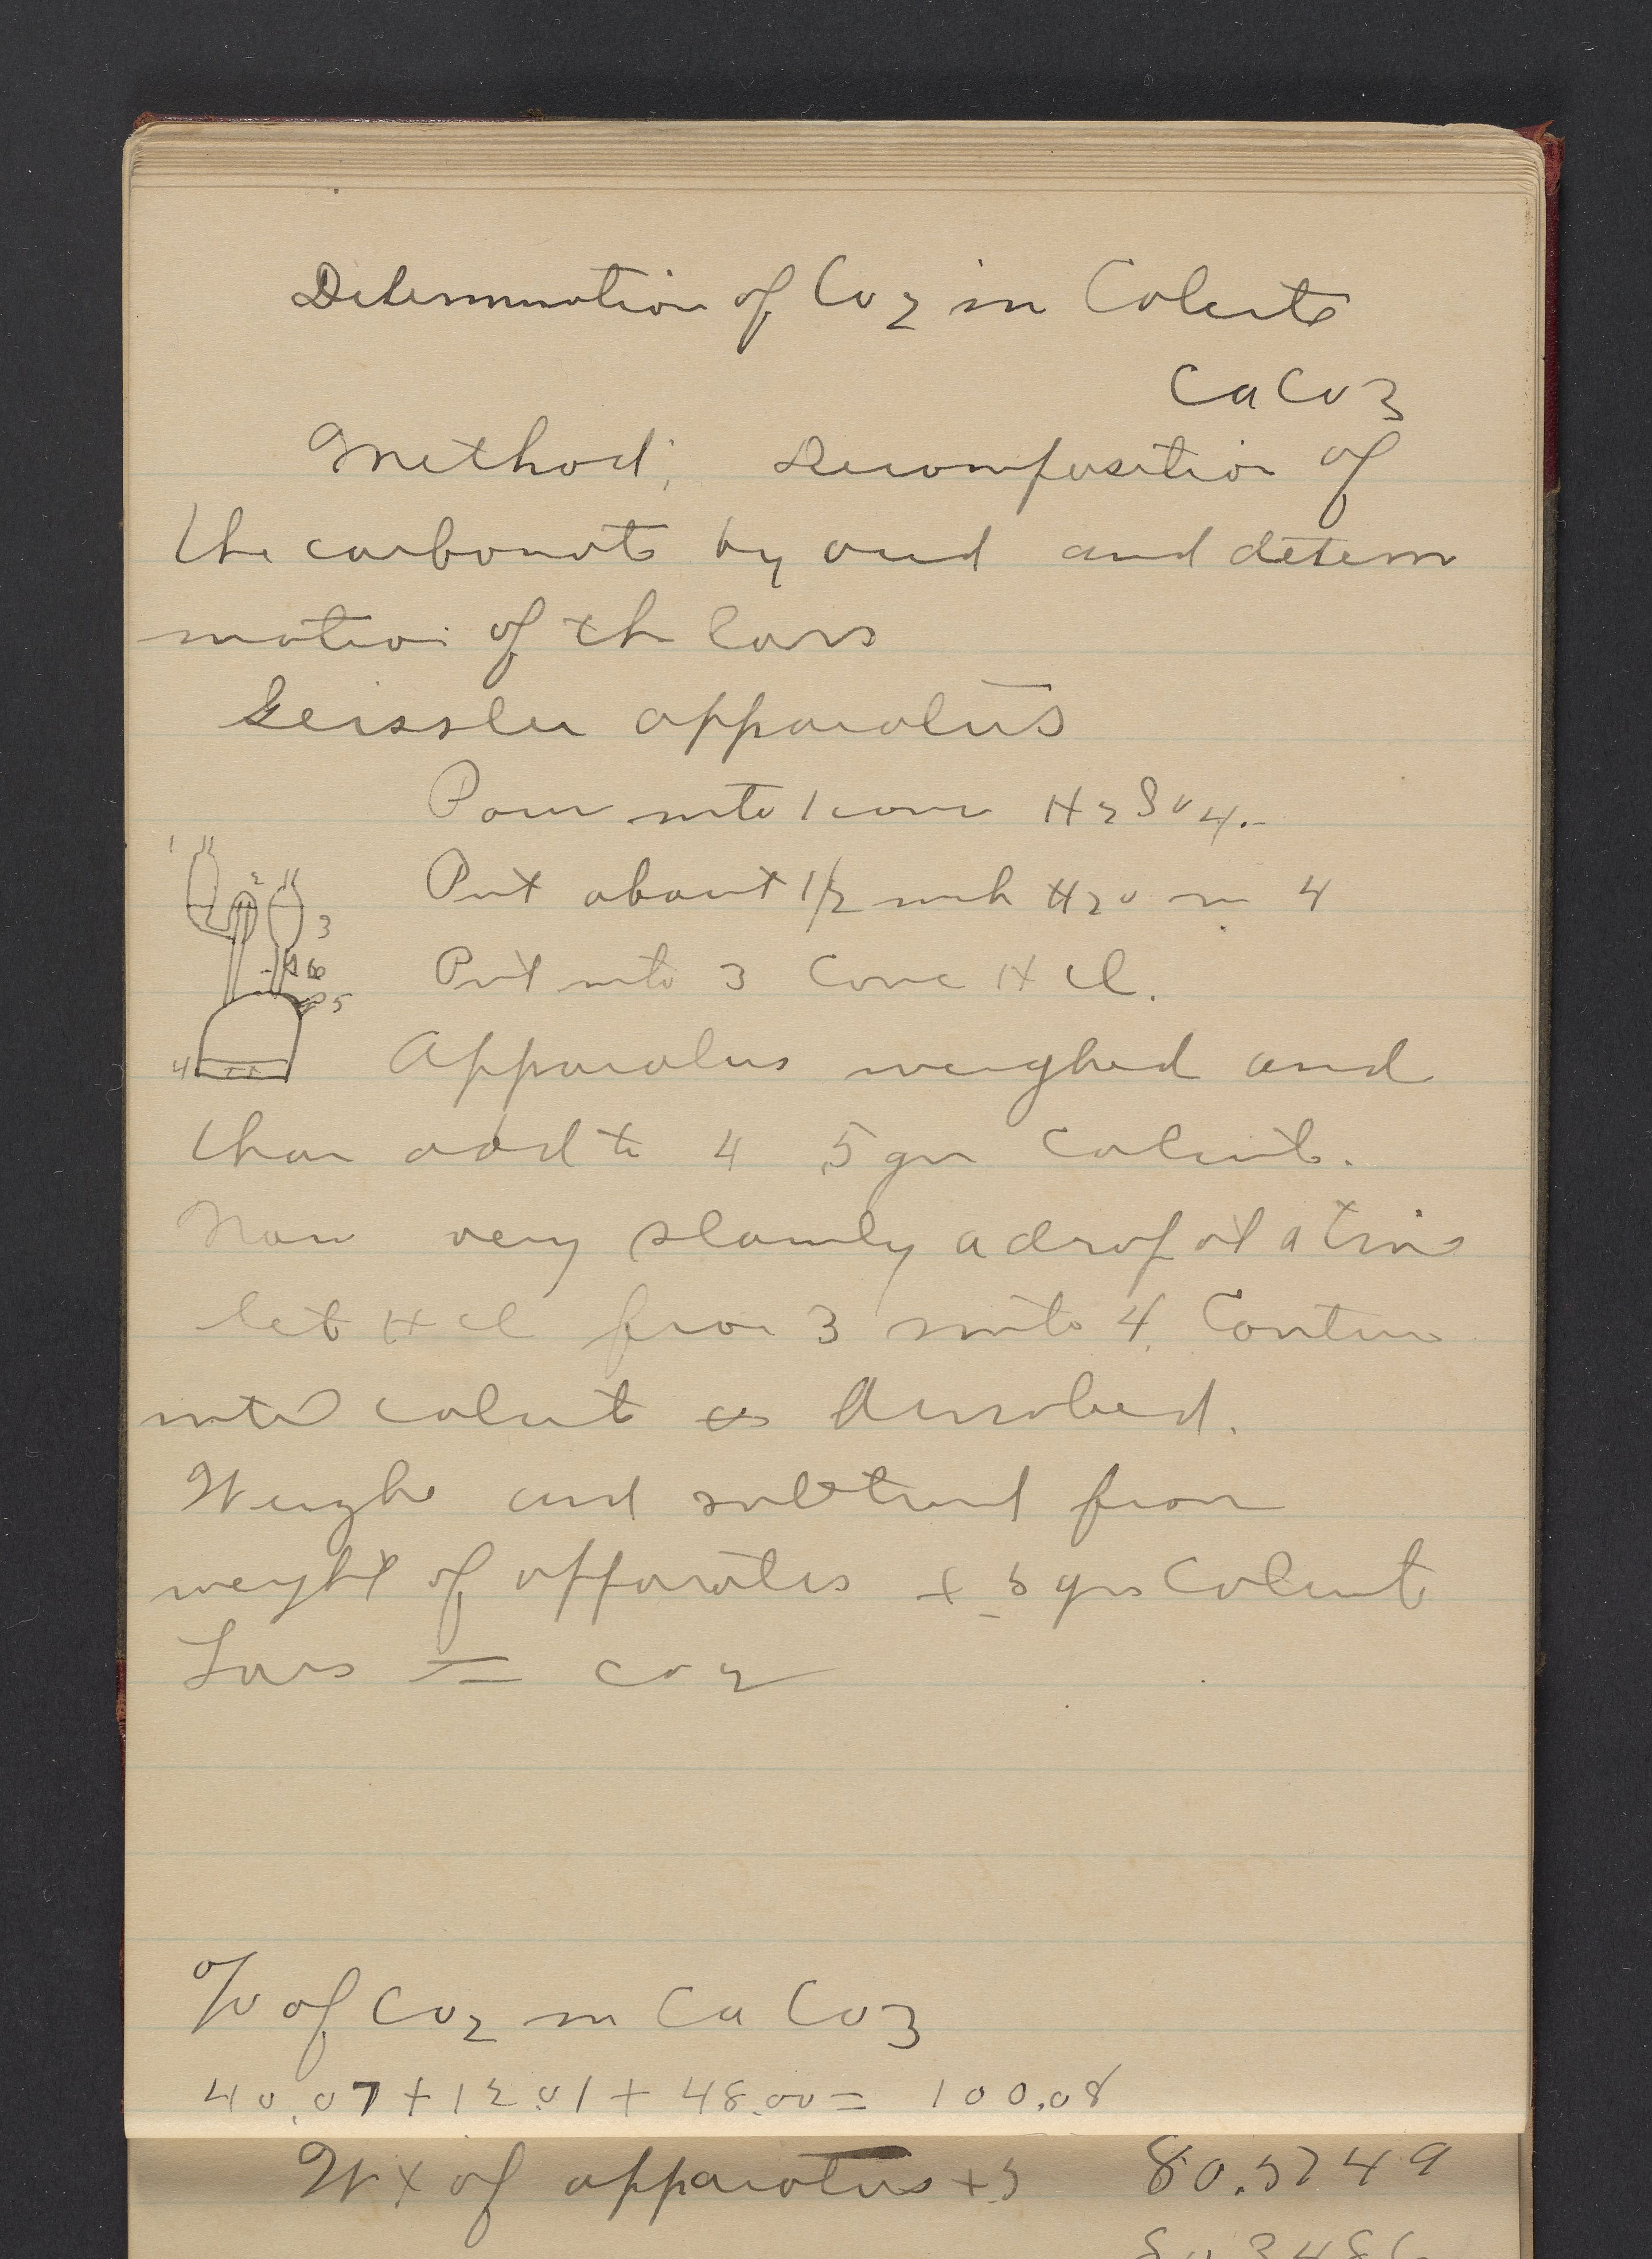 Determination of CO2 in Calcite
CaCO3
Method: Decomposition of
the carbonate by acid and determ
ination of the loss
Geissler apparatus
Pour into 1 conc H2SO4.
Put about 1/2 inch H2O in 4
Put into 3 conc HCl.
1 2 3 6 5 4
Apparatus weighed and
then add to 4 .5 gm calcite.
Now very slowly a drop at a time
let HCl from 3 into 4. Continue
until calcite is dissolved.
Weigh and subtract from
weight of apparatus + .5 gms Calcite
Loss = CO2
% of CO2 in CaCO3
40.07 + 12.01 + 48.00 = 100.08
Wt of apparatus + .5 80.5749